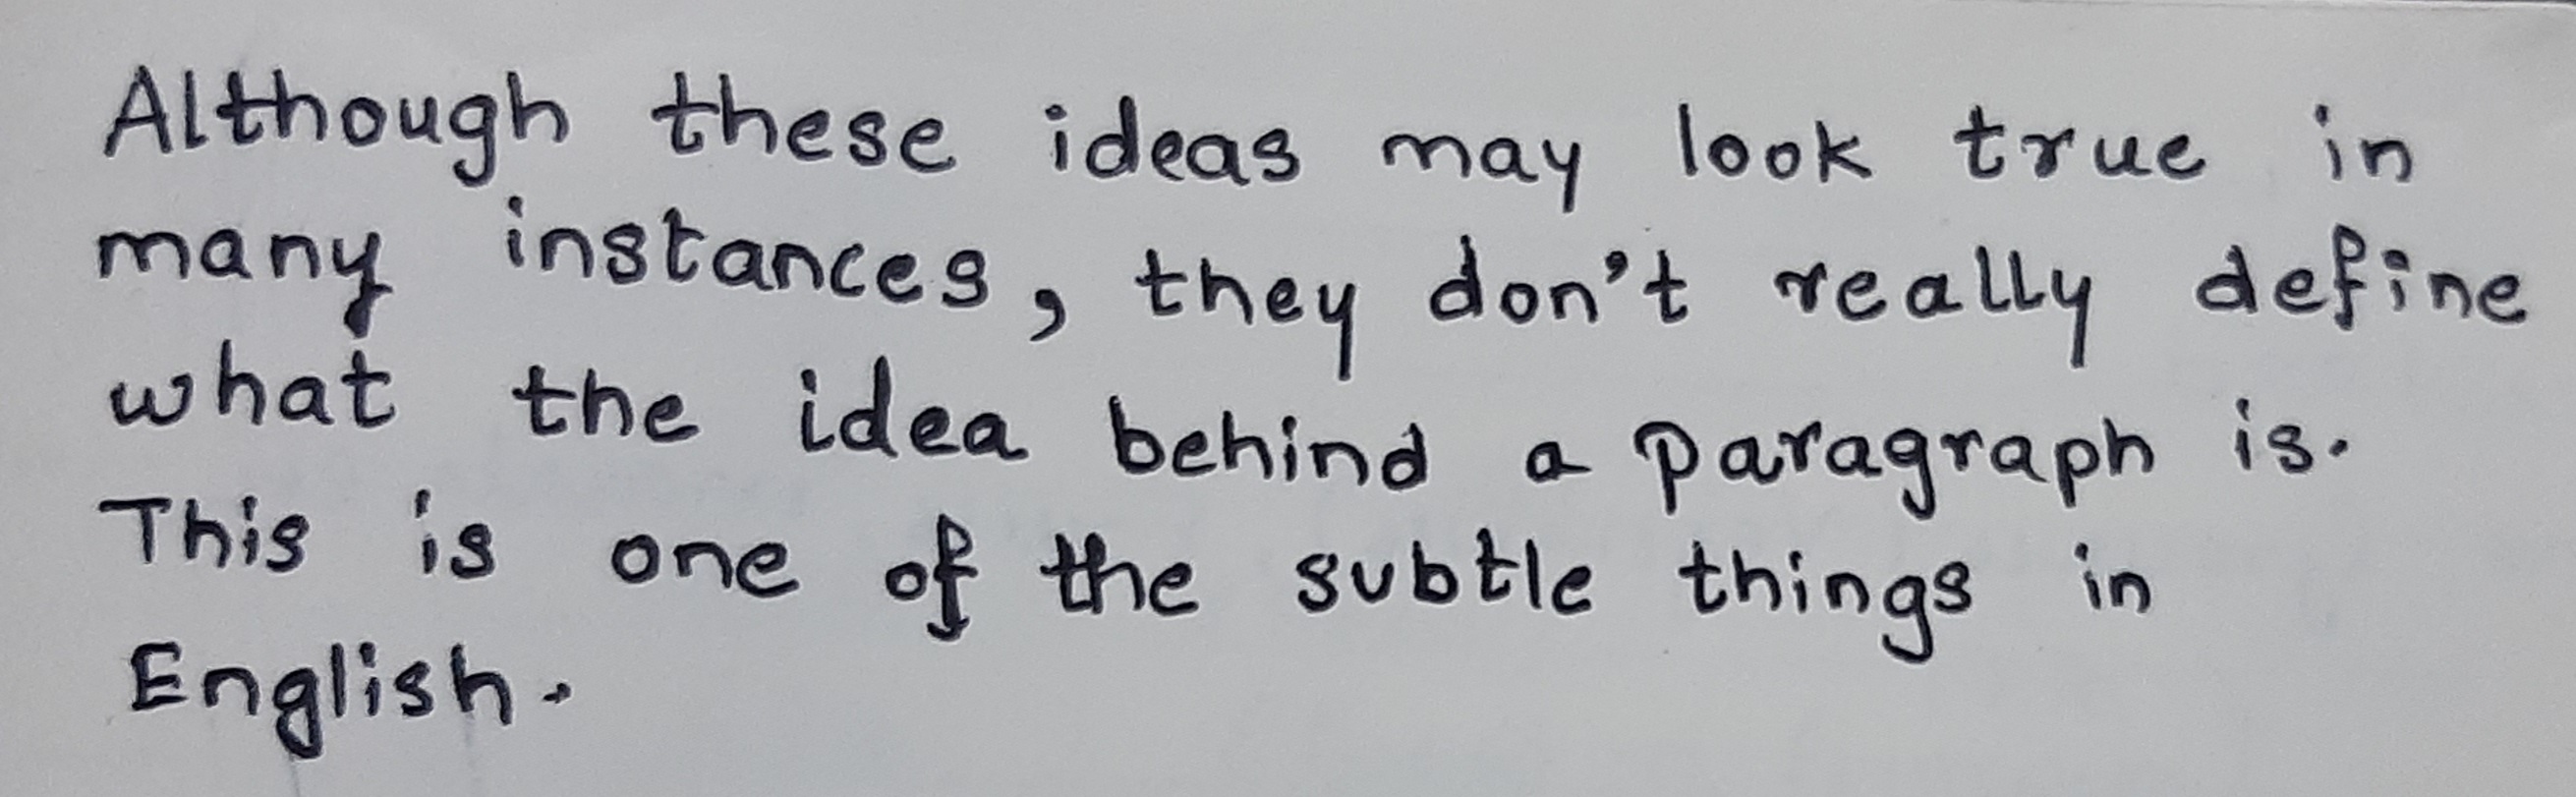 Although these ideas may look true in
many instances, they don't really define
what the idea behind a paragraph is.
This is one of the subtle things in
English.